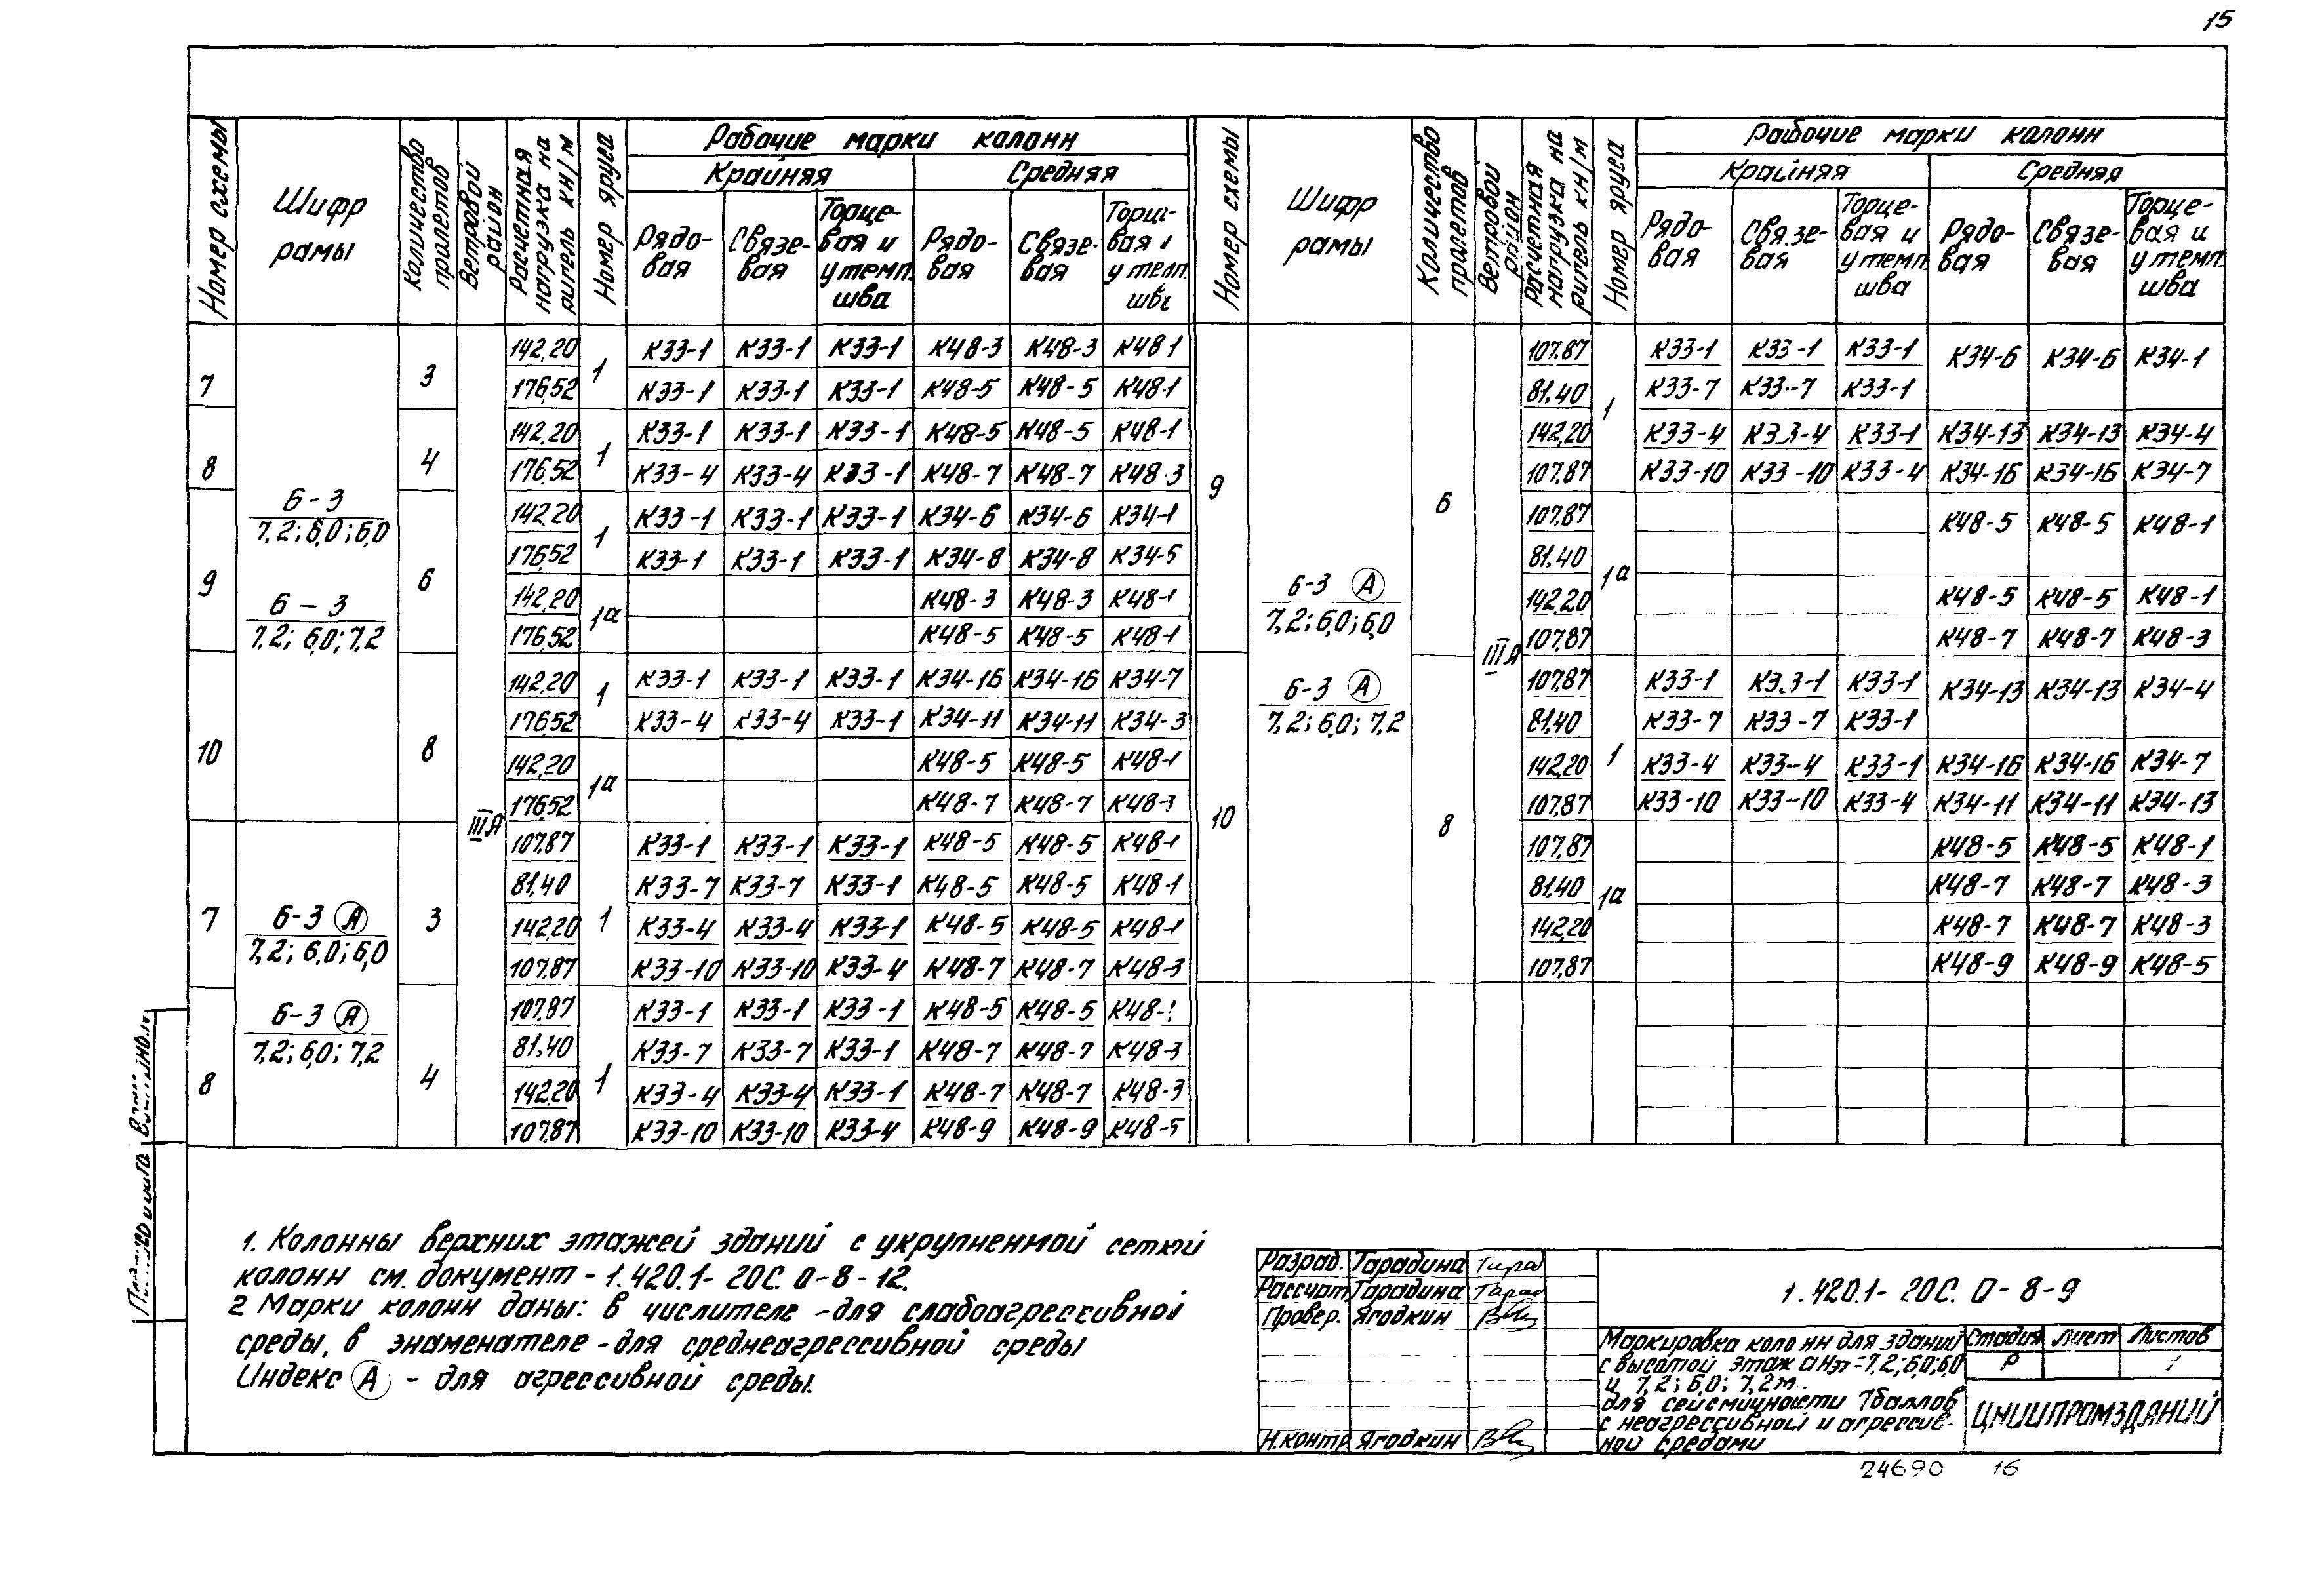 15
Номер схемы
Шифр рамы
Количество пролетов
Ветровой район
Расчетная нагрузка на ригель кн/м
Номер яруса
Рабочие марки колонн
Крайняя Средняя
Рядо-вая Связе-вая Торце-вая и у темп. шва Рядо-вая Связе-вая
Номер схемы
Шифр рамы
Количество пролетов
Ветровой район
Расчетная нагрузка на ригель кн/м
Номер яруса
Рабочие марки колонн
Крайняя Средняя
Рядо-вая Связе-вая Торце-вая и у темп. шва Рядо-вая Связе-вая Торце-вая и у темп. шва
6-3
7,2; 6,0; 6,0
6-3
7,2; 6,0; 7,2
III А
7 3 142,20 1 К33-1 К33-1 К33-1 К48-3 К48-3 К48 1
176,52 К33-1 К33-1 К33-1 К48-5 К48-5 К48-1
8 4 142,20 1 К33-1 К33-1 К33-1 К48-5 К48-5 К48-1
176,52 К33-4 К33-4 К33-1 К48-7 К48-7 К48-3
9 6 142,20 1 К33-1 К33-1 К33-1 К34-6 К34-6 К34-1
176,52 К33-1 К33-1 К33-1 К34-8 К34-8 К34-5
142,20 1а К48-3 К48-3 К48-1
176,52 К48-5 К48-5 К48-1
10 8 142,20 1 К33-1 К33-1 К33-1 К34-16 К34-16 К34-7
176,52 К33-4 К33-4 К33-1 К34-11 К34-11 К34-3
142,20 1а К48-5 К48-5 К48-1
176,52 К48-7 К48-7 К48-3
6-3 А
7,2; 6,0; 6,0
6-3 А
7,2; 6,0; 7,2
7 3 107,87 1 К33-1 К33-1 К33-1 К48-5 К48-5 К48-1
81,40 К33-7 К33-7 К33-1 К48-5 К48-5 К48-1
142,20 К33-4 К33-4 К33-1 К48-5 К48-5 К48-1
107,87 К33-10 К33-10 К33-4 К48-7 К48-7 К48-3
8 4 107,87 1 К33-1 К33-1 К33-1 К48-5 К48-5
81,40 К33-7 К33-7 К33-1 К48-7 К48-7 К48-3
142,20 К33-4 К33-4 К33-1 К48-7 К48-7 К48-3
107,87 К33-10 К33-10 К33-4 К48-9 К48-9 К48-5
6-3 А
7,2; 6,0; 6,0
6-3 А
7,2; 6,0; 7,2
III А
9 6 107,87 1 К33-1 К33-1 К33-1 К34-6 К34-6 К34-1
81,40 К33-7 К33-7 К33-1
142,20 К33-4 К33-4 К33-1 К34-13 К34-13 К34-4
107,87 К33-10 К33-10 К33-4 К34-16 К34-16 К34-7
107,87 1а К48-5 К48-5 К48-1
81,40
142,20 К48-5 К48-5 К48-1
107,87 К48-7 К48-7 К48-3
10 8 107,87 1 К33-1 К33-1 К33-1 К34-13 К34-13 К34-4
81,40 К33-7 К33-7 К33-1
142,20 К33-4 К33-4 К33-1 К34-16 К34-16 К34-7
107,87 К33-10 К33-10 К33-4 К34-11 К34-11 К34-13
107,87 1а К48-5 К48-5 К48-1
81,40 К48-7 К48-7 К48-3
142,20 К48-7 К48-7 К48-3
107,87 К48-9 К48-9 К48-5
1. Колонны верхних этажей зданий с укрупненной сеткой
колонн см. документ - 1.420.1-20С. 0-8-12.
2 Марки колонн даны: в числителе - для слабоагрессивной
среды, в знаменателе - для среднеагрессивной среды
Индекс А - для агрессивной среды.
Разраб. Тарадина
Рассчит. Тарадина
Провер. Ягодкин
Н.контр Ягодкин
1.420.1-20С. 0-8-9
Маркировка колонн для зданий
с высотой этажа Нэт=7,2;6,0;6,0
и 7,2; 6,0; 7,2м.
для сейсмичности 7баллов
с неагрессивной и агрессив-
ной средами
Стадия Лист Листов
Р 1
ЦНИИПРОМЗДАНИЙ
24690 16